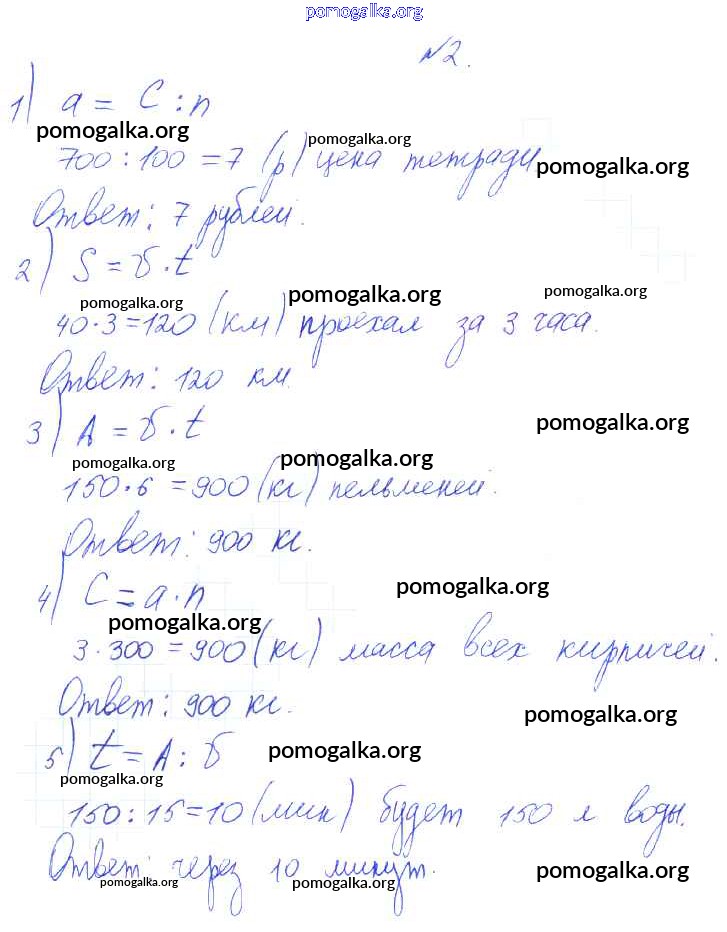 pomogalka.org
№2.
1) a = C : n
pomogalka.org
pomogalka.org
700 : 100 = 7 (р) цена тетради
pomogalka.org
Ответ: 7 рублей.
2) S = v · t
pomogalka.org
pomogalka.org
pomogalka.org
40 · 3 = 120 (км) проехал за 3 часа.
Ответ: 120 км.
3) A = v · t
pomogalka.org
pomogalka.org
pomogalka.org
150 · 6 = 900 (кг) пельменей.
Ответ: 900 кг.
4) C = a · n
pomogalka.org
pomogalka.org
3 · 300 = 900 (кг) масса всех кирпичей.
Ответ: 900 кг.
pomogalka.org
5) t = A : v
pomogalka.org
pomogalka.org
150 : 15 = 10 (мин) будет 150 л воды.
Ответ: через 10 минут.
pomogalka.org
pomogalka.org
pomogalka.org